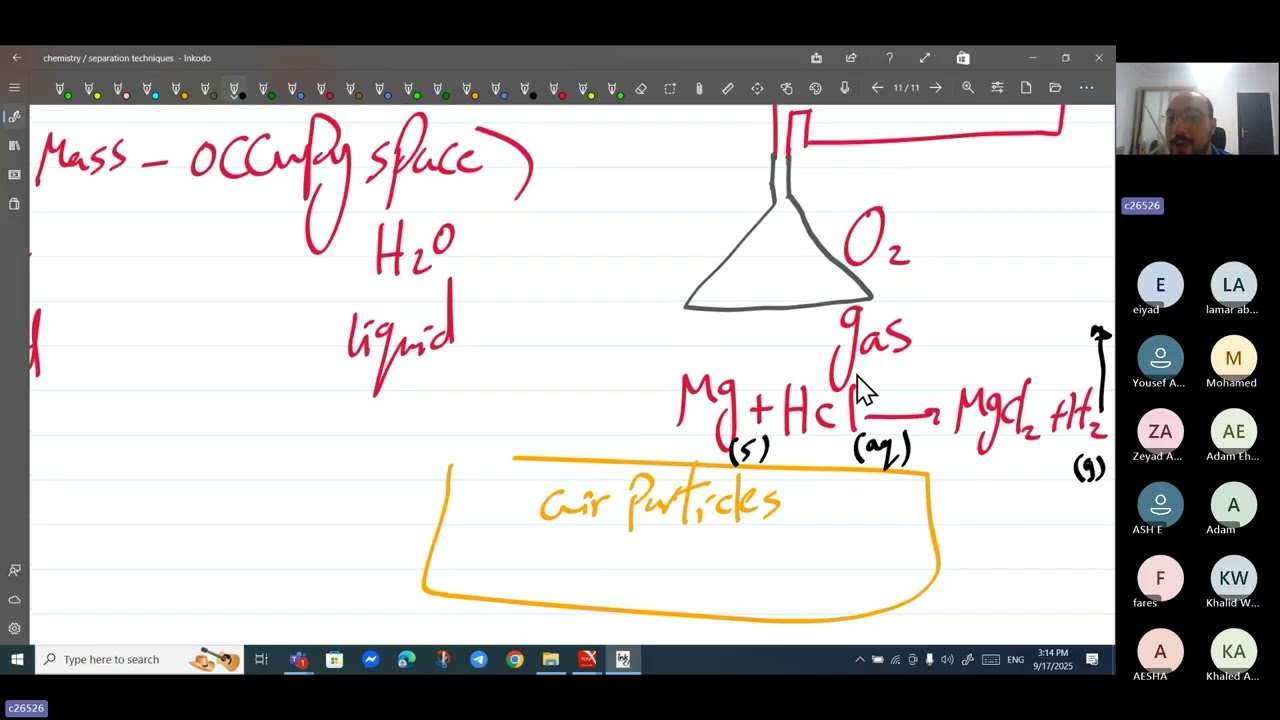 chemistry / separation techniques - Inkodo
11 / 11
Mass - occupy space)
H2O
liquid
O2
gas
Mg + HCl → MgCl2 + H2
(s) (aq) (g)
air particles
c26526
E
eiyad
LA
lamar ab...
Yousef A...
M
Mohamed
ZA
Zeyad A...
AE
Adam Eh...
ASH E
A
Adam
F
fares
KW
Khalid W...
A
AESHA
KA
Khaled A...
Type here to search
ENG
3:14 PM
9/17/2025
c26526